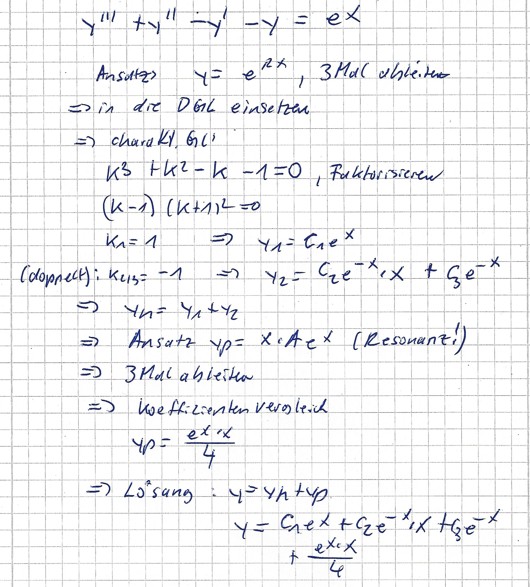 y''' + y'' - y' - y = e^x
Ansatz y = e^kx, 3 Mal ableiten
=> in die DGL einsetzen
=> charakt. Gl.
k^3 + k^2 - k - 1 = 0, Faktorisieren
(k-1) (k+1)^2 = 0
k_1 = 1 => y_1 = C_1 e^x
(doppelt): k_2,3 = -1 => y_2 = C_2 e^-x · x + C_3 e^-x
=> y_h = y_1 + y_2
=> Ansatz y_p = x · A e^x (Resonanz!)
=> 3 Mal ableiten
=> Koeffizientenvergleich
y_p = e^x · x / 4
=> Lösung : y = y_h + y_p
y = C_1 e^x + C_2 e^-x · x + C_3 e^-x
+ e^x · x / 4